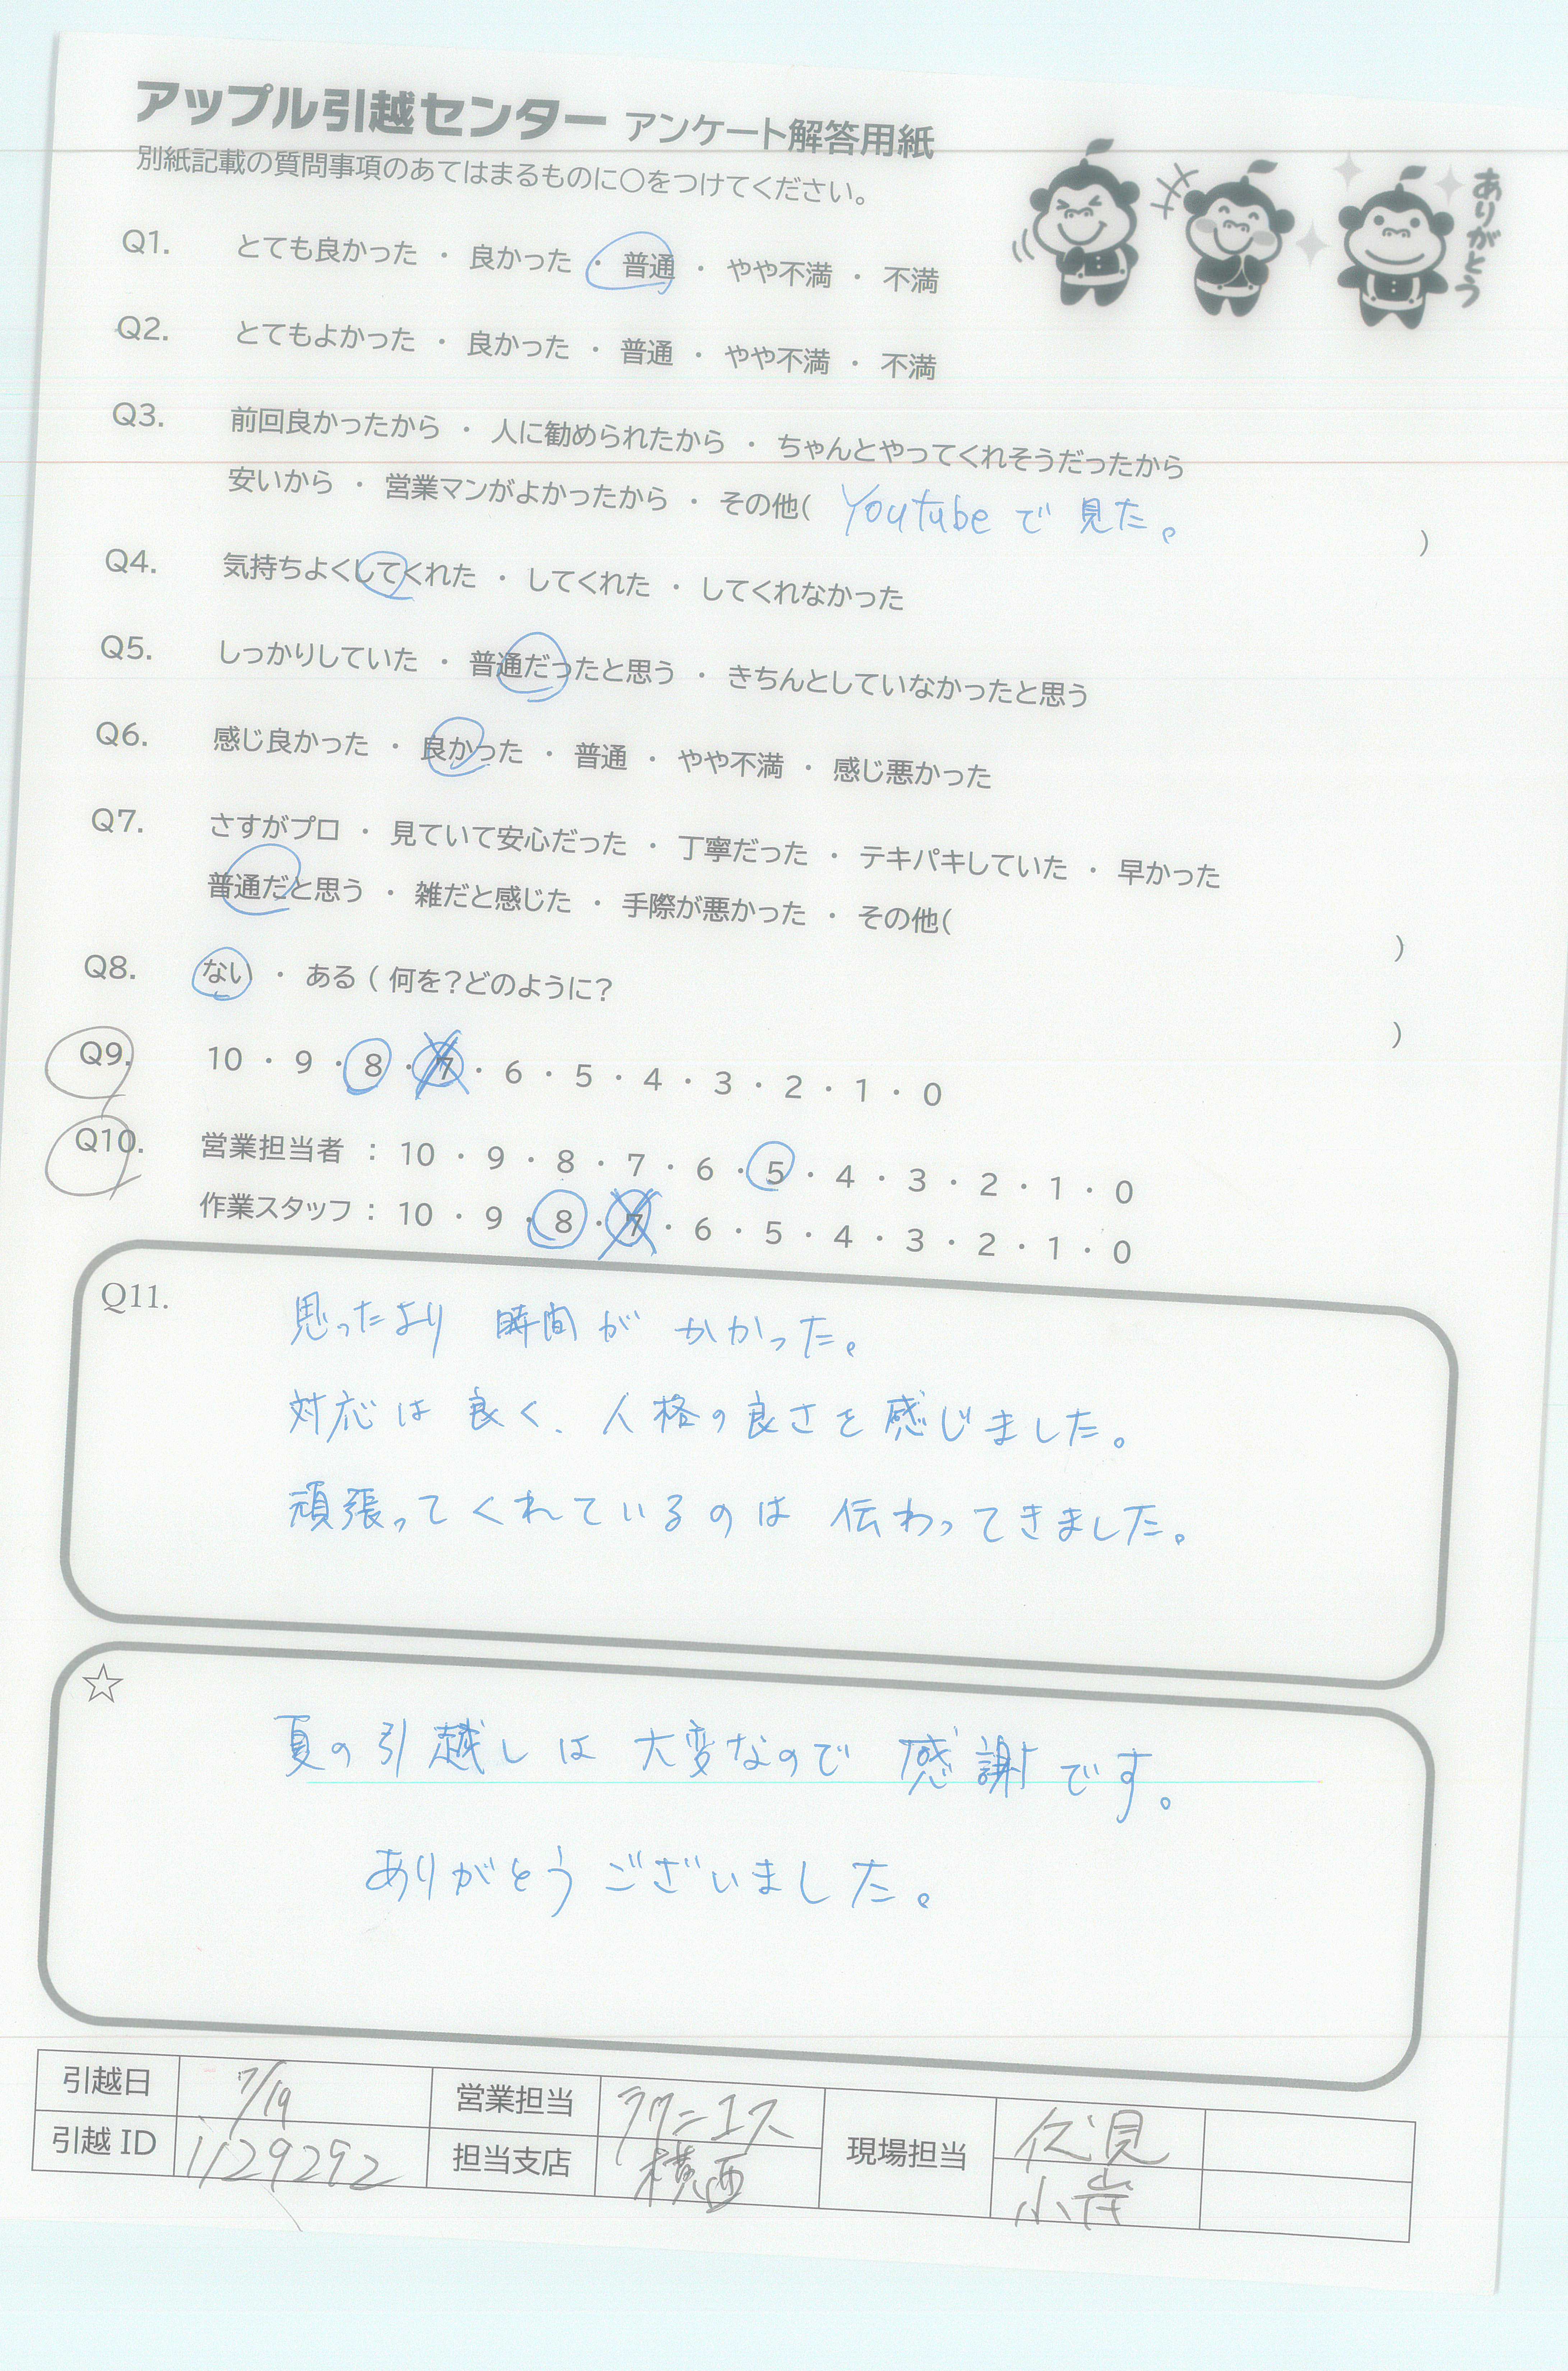 アップル引越センター アンケート解答用紙
別紙記載の質問事項のあてはまるものに〇をつけてください。
ありがとう
Q1. とても良かった ・ 良かった ・ 普通 ・ やや不満 ・ 不満
Q2. とてもよかった ・ 良かった ・ 普通 ・ やや不満 ・ 不満
Q3. 前回良かったから ・ 人に勧められたから ・ ちゃんとやってくれそうだったから
安いから ・ 営業マンがよかったから ・ その他( Youtubeで見た。 )
Q4. 気持ちよくしてくれた ・ してくれた ・ してくれなかった
Q5. しっかりしていた ・ 普通だったと思う ・ きちんとしていなかったと思う
Q6. 感じ良かった ・ 良かった ・ 普通 ・ やや不満 ・ 感じ悪かった
Q7. さすがプロ ・ 見ていて安心だった ・ 丁寧だった ・ テキパキしていた ・ 早かった
普通だと思う ・ 雑だと感じた ・ 手際が悪かった ・ その他( )
Q8. ない ・ ある ( 何を？どのように？ )
Q9. 10 ・ 9 ・ 8 ・ 7 ・ 6 ・ 5 ・ 4 ・ 3 ・ 2 ・ 1 ・ 0
Q10. 営業担当者 : 10 ・ 9 ・ 8 ・ 7 ・ 6 ・ 5 ・ 4 ・ 3 ・ 2 ・ 1 ・ 0
作業スタッフ : 10 ・ 9 ・ 8 ・ 7 ・ 6 ・ 5 ・ 4 ・ 3 ・ 2 ・ 1 ・ 0
Q11. 思ったより 時間が かかった。
対応は良く、人格の良さを感じました。
頑張ってくれているのは 伝わってきました。
☆
夏の引越しは 大変なので 感謝です。
ありがとうございました。
引越日 7/19 営業担当 ラクーエス 現場担当 伏見
引越 ID 1129292 担当支店 横西 小岸